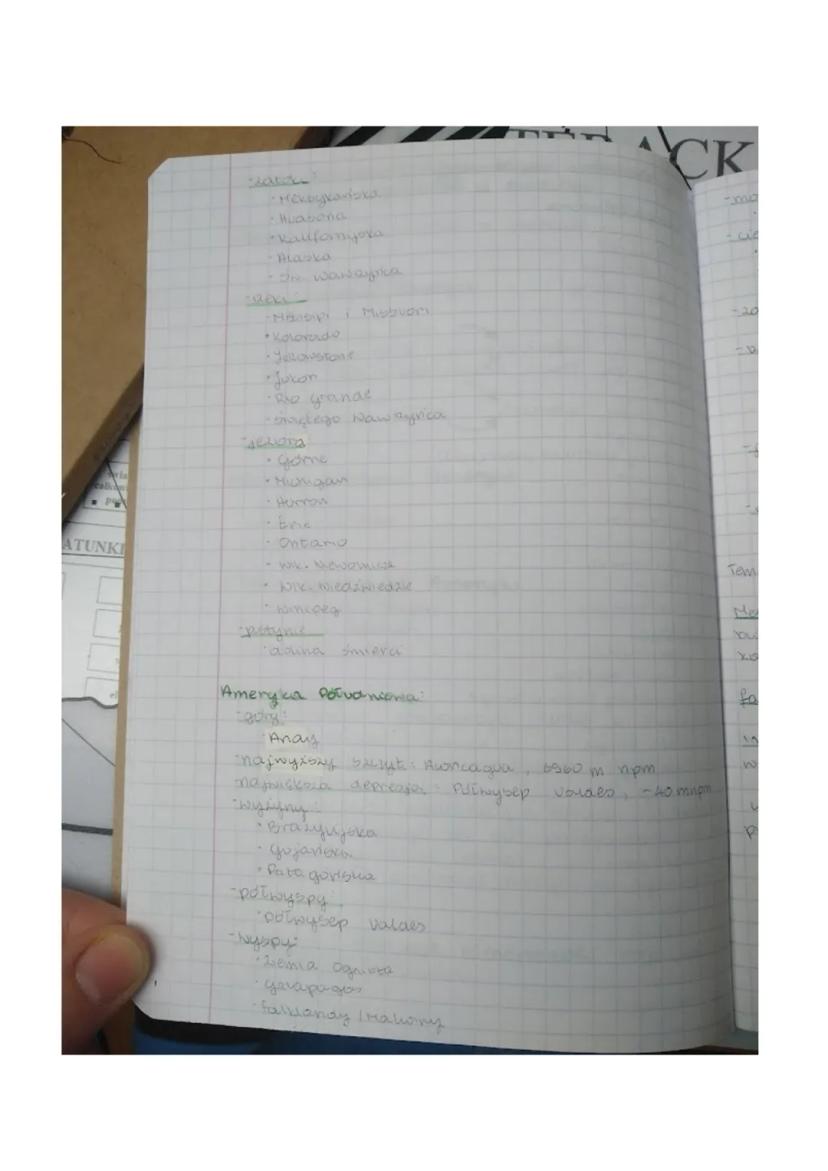 TERACK
-zatoki:
· Meksykańska
· Hudsona
· Kalifornijska
· Alaska
· Św. Wawrzyńca
-rzeki:
· Missisipi i Missouri
· Kolorado
· Yellowstone
· Jukon
· Rio Grande
· Świętego Wawrzyńca
-jeziora
· Górne
· Michigan
· Huron
· Erie
· Ontario
· Wlk. Niewolnicze
· Wlk. Niedźwiedzie
· Winipeg
-pustynie
· dolina śmierci
Ameryka Południowa:
-góry:
· Andy
-najwyższy szczyt: Aconcagua, 6960 m npm
-największa depresja: Półwysep Valdes, -40 m npm
-wyżyny:
· Brazylijska
· Gujańska
· Patagońska
-półwyspy:
· półwysep Valdes
-wyspy:
· Ziemia Ognista
· Galapagos
· Falklandy / Malwiny
ATUNKI
Tem